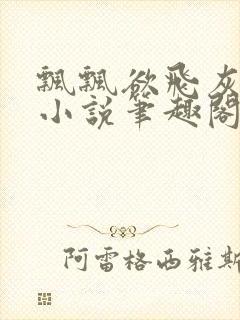 飄飄欲飛灰
小說筆趣閣
阿雷格西雅斯